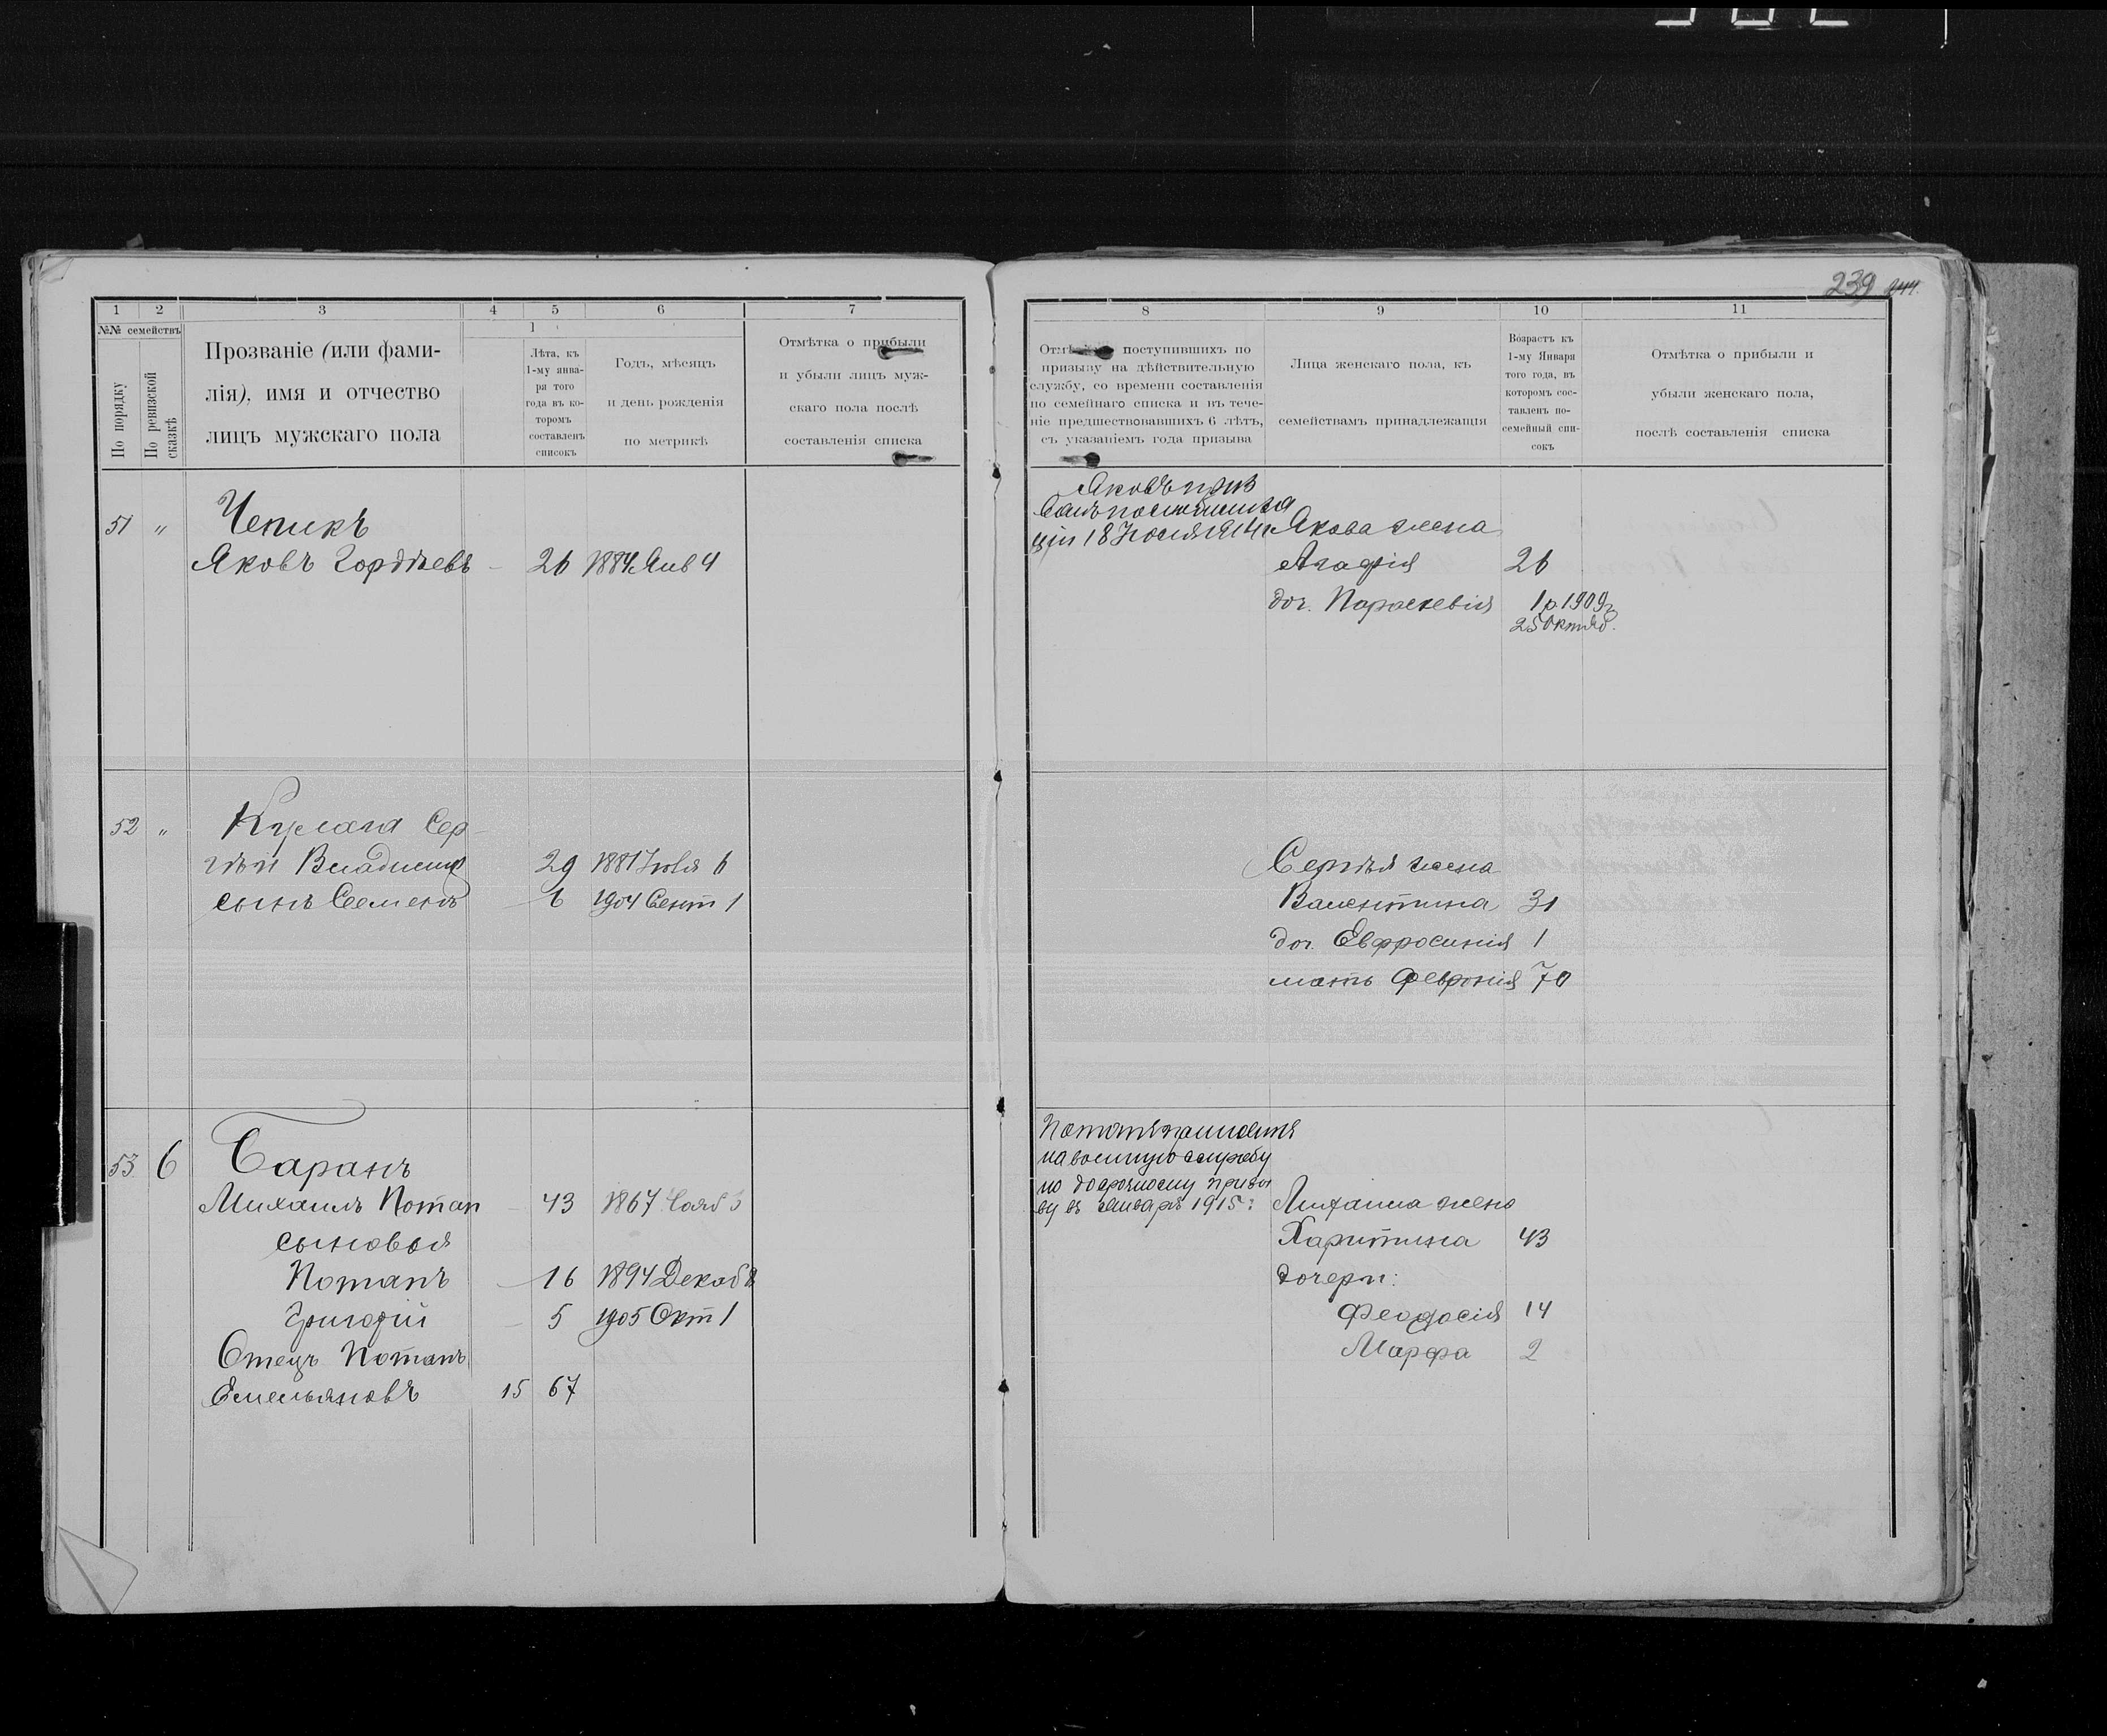 239 244.
1 2 3 4 5 6 7
№№ семействъ
По порядку
По ревизской сказкѣ
Прозваніе (или фами-
лія), имя и отчество
лицъ мужскаго пола
1
Лѣта, къ
1-му янва-
ря того
года въ ко-
торомъ
составленъ
списокъ
Годъ, мѣсяцъ
и день рожденія
по метрикѣ
Отмѣтка о прибыли
и убыли лицъ муж-
скаго пола послѣ
составленія списка
51 „ Чепикъ
Яковъ Гордѣевъ - 26 1884 Янв 4
52 „ Сер-
гѣй 29 1881 6
сынъ Семенъ 6 1904 Сент 1
53 6 Баранъ
Михаилъ Потап - 43 1867
сыновья
Потапъ - 16 1894 Декаб 8
Григорій - 5 1905 Окт 1
Отецъ Потапъ
Емельяновъ 15 67
8 9 10 11
поступившихъ по
призыву на дѣйствительную
службу, со времени составленія
по семейнаго списка и въ тече-
ніе предшествовавшихъ 6 лѣтъ,
съ указаніемъ года призыва
Лица женскаго пола, къ
семействамъ принадлежащія
Возрастъ къ
1-му Января
того года, въ
которомъ сос-
тавленъ по-
семейный спи-
сокъ
Отмѣтка о прибыли и
убыли женскаго пола,
послѣ составленія списка
Яковъ приз
ванъ по мобилиза
ціи 18 Іюля 1914 г Якова жена
Агафія 26
доч. Параскевія 1 р. 1909 г
25 Октяб.
Сергѣя жена
Валентина 31
доч. Евфросинія 1
мать Февронія 70
Потапъ
на военную службу
по досрочному призы
ву въ январѣ 1915 г Михаила жена
Харитина 43
дочери:
Феодосія 14
Марфа 2